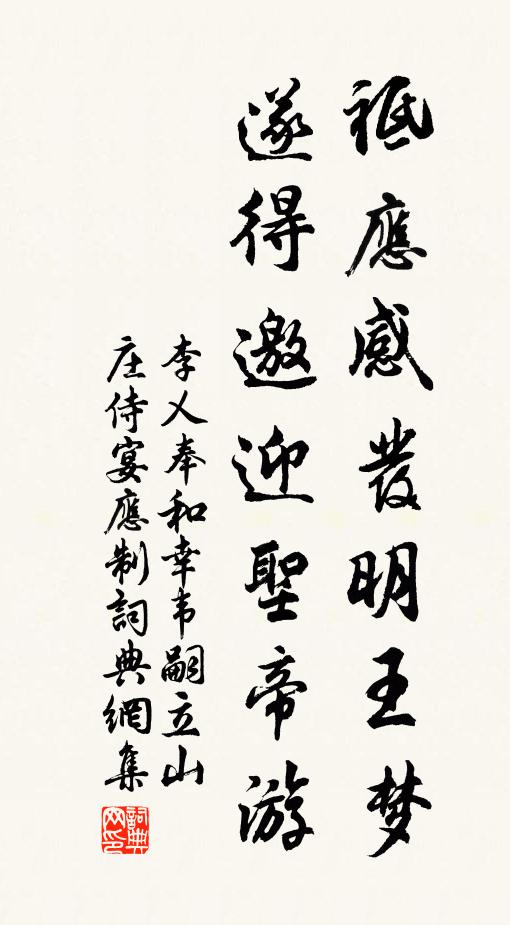 祗應感發明王梦
遂得邀迎聖帝游
李乂奉和幸韦嗣立山
庄侍宴應制詞典網集
詞典网印